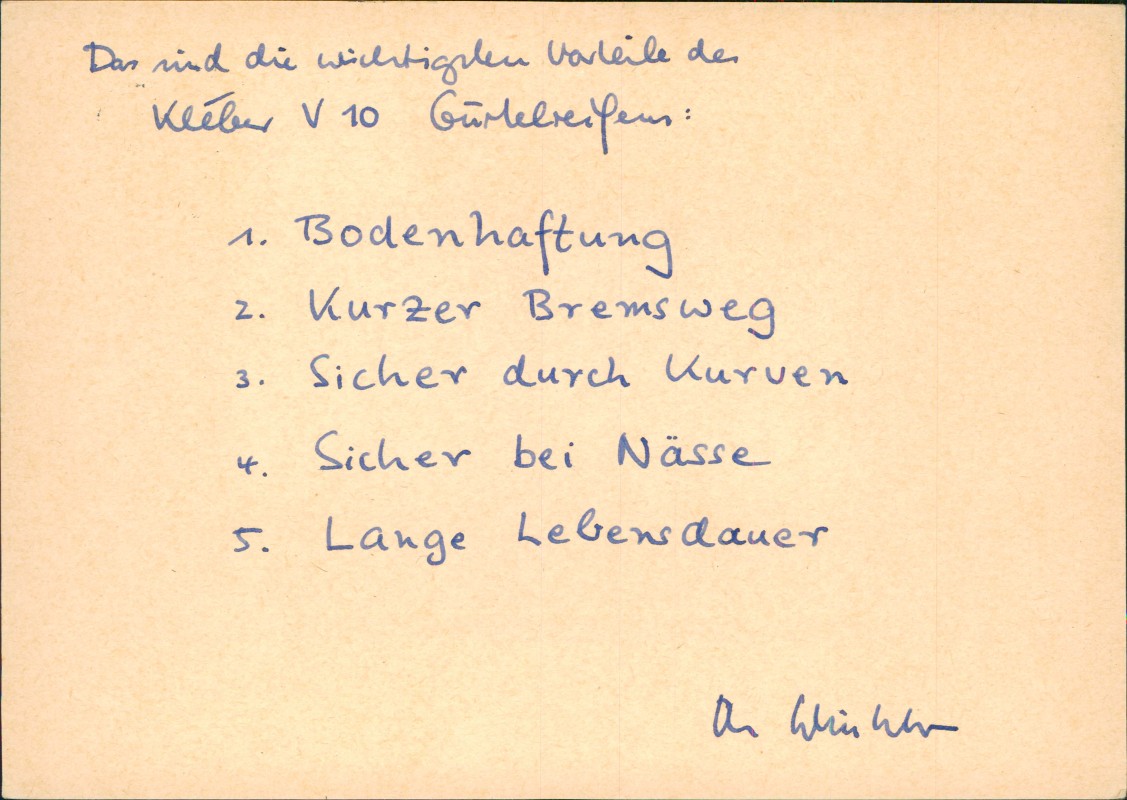 Das sind die wichtigsten Vorteile des
Kléber V 10 Gürtelreifens:
1. Bodenhaftung
2. Kurzer Bremsweg
3. Sicher durch Kurven
4. Sicher bei Nässe
5. Lange Lebensdauer